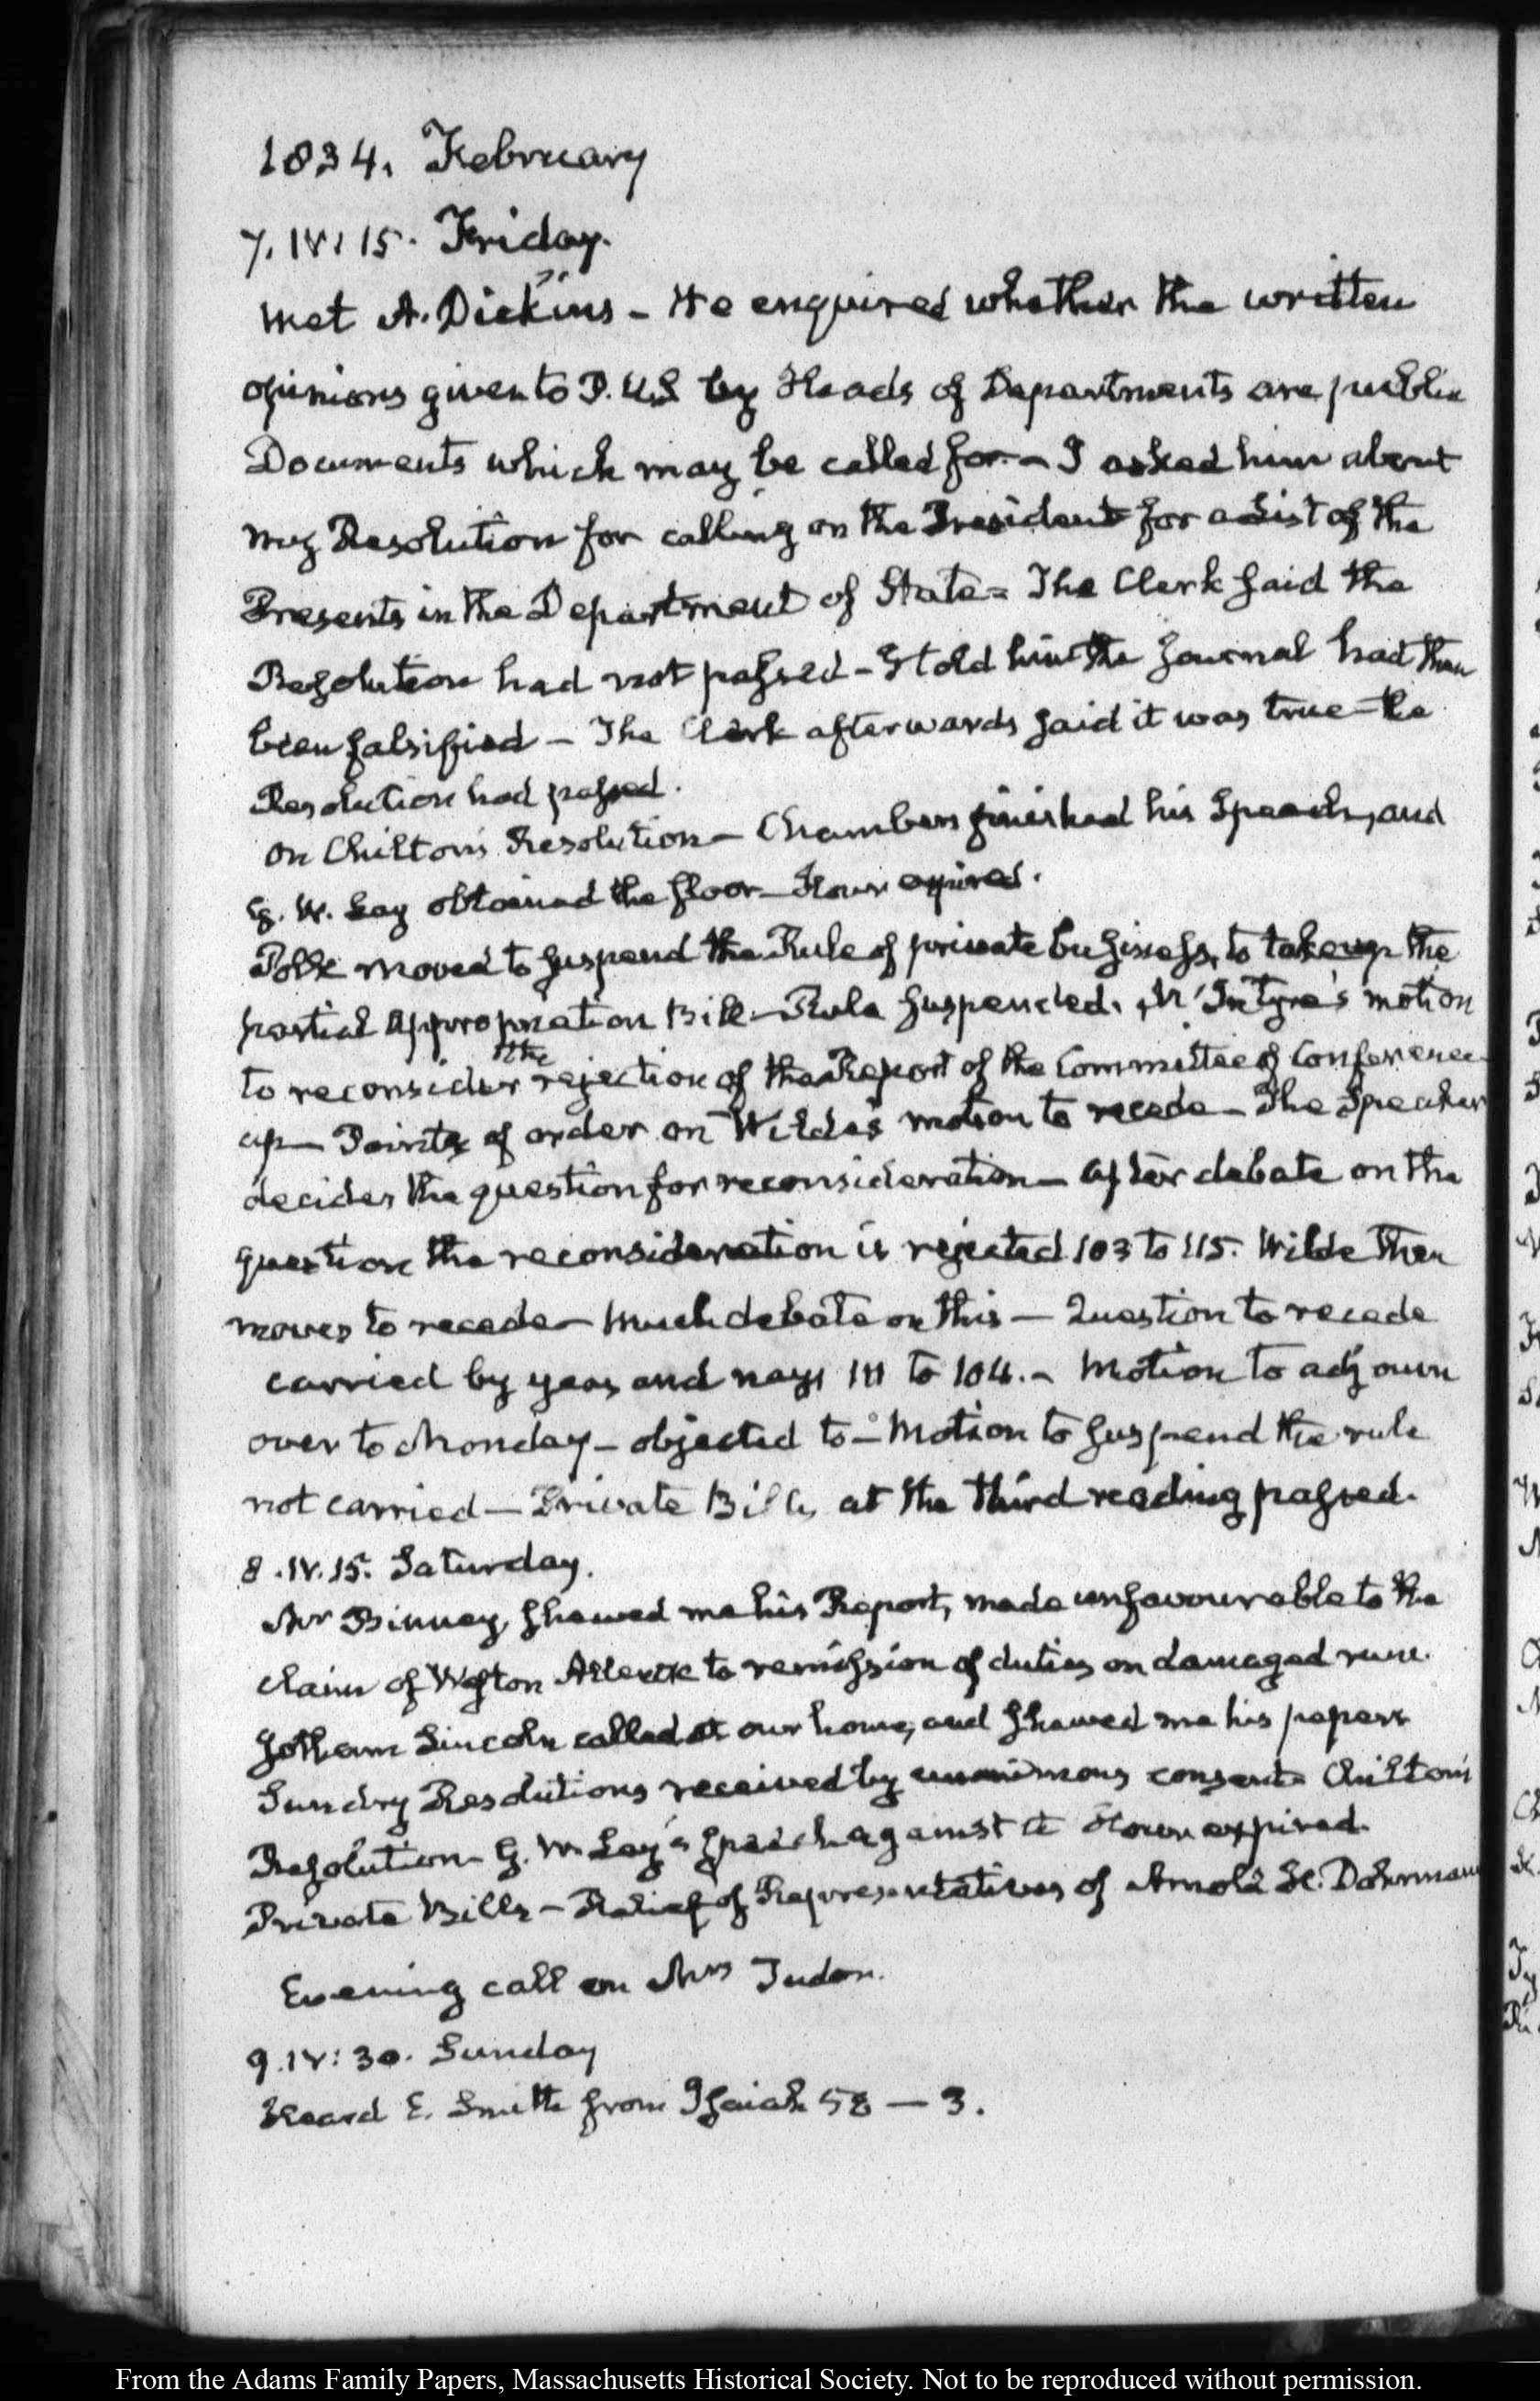 1834. February
7. IV: 15. Friday.
Met A. Dickins - He enquired whether the written
opinions given to P. U.S by Heads of Departments are public
Documents which may be called for. - I asked him about
my Resolution for calling on the President for a List of the
Presents in the Department of State - The Clerk said the
Resolution had not passed - I told him the Journal had then
been falsified - The Clerk afterwards said it was true - the
Resolution had passed.
On Chilton's Resolution - Chambers finished his Speech, and
G. W. Lay obtained the floor - Hour expired.
Polk moved to suspend the Rule of private business, to take up the
partial Appropriation Bill - Rule suspended. McIntyre's motion
to reconsider the rejection of the Report of the Committee of Conference
up - Points of order on Wilde's motion to recede - The Speaker
decides the question for reconsideration - after debate on the
question the reconsideration is rejected 103 to 115. Wilde then
moves to recede - Much debate on this - Question to recede
carried by yeas and nays 111 to 104. - Motion to adjourn
over to Monday - objected to - Motion to suspend the rule
not carried - Private Bills at the third reading passed.
8. IV. 15. Saturday.
Mr Binney shewed me his Report, made unfavourable to the
claim of to remission of duties on damaged
Jotham Lincoln called at our house, and shewed me his papers
Sundry Resolutions received by unanimous consent - Chilton's
Resolution - G. W. Lay's speech against it Hour expired.
Private Bills - Relief of Representatives of Arnold H. Dohrman
Evening call on Mrs Tudor.
9. IV: 30. Sunday
Heard E. Smith from Isaiah 58 - 3.
From the Adams Family Papers, Massachusetts Historical Society. Not to be reproduced without permission.